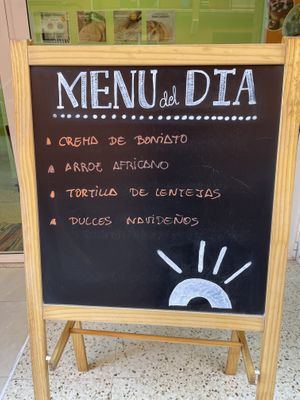 MENU del DIA
CREMA DE BONIATO
ARROZ AFRICANO
TORTILLA DE LENTEJAS
DULCES NAVIDEÑOS